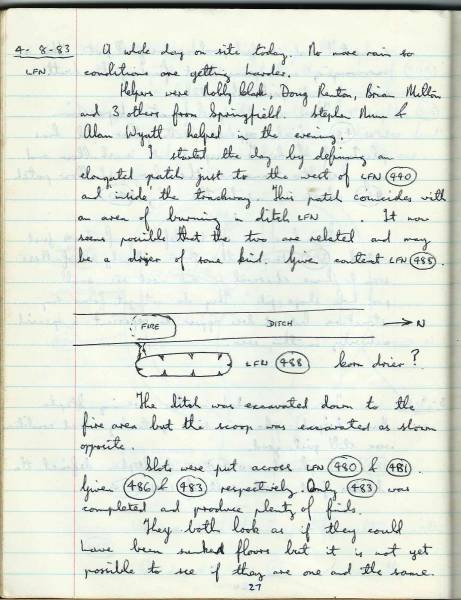 4-8-83 A whole day on site today. No more rain so
LFN conditions are getting harder.
Helpers were Molly Clark, Doug Renton, Brian Milton
and 3 others from Springfield. Stephen Nunn &
Alan Wyatt helped in the evening.
I started the day by defining an
elongated patch just to the west of LFN 440
and inside the trackway. This patch coincides with
an area of burning in ditch LFN . It now
seems possible that the two are related and may
be a drier of some kind. Given context LFN 488.
FIRE DITCH → N
LFN 488 Corn drier?
The ditch was excavated down to the
fire area but the scoop was excavated as shown
opposite.
Slots were put across LFN 480 & 481.
Given 486 & 483 respectively. Only 483 was
completed and produce plenty of finds.
They both look as if they could
have been sunked floors but it is not yet
possible to see if they are one and the same.
27